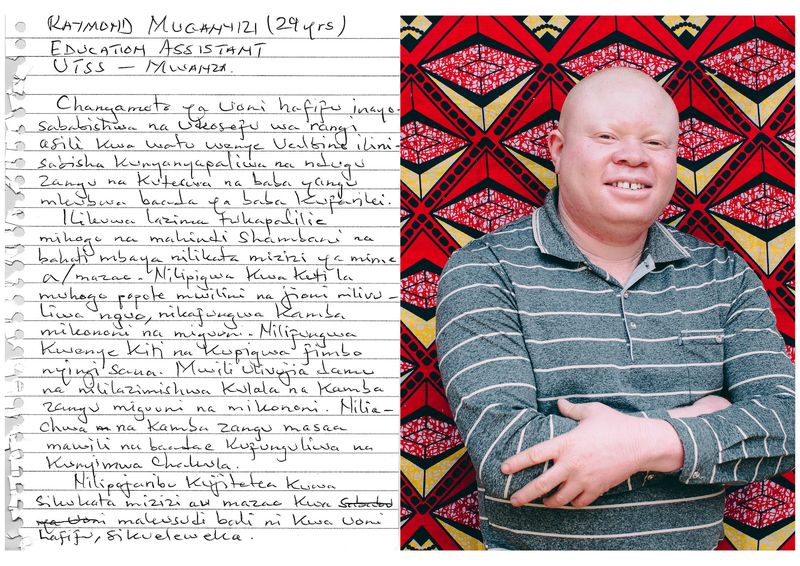 RAYMOND MUGANYIZI (29 yrs)
EDUCATION ASSISTANT
UTSS – MWANZA.
Changamoto ya uoni hafifu inayo-
sababishwa na ukosefu wa rangi
asili kwa watu wenye ualbino ilini-
sabisha kunyanyapaliwa na ndugu
zangu na kuteswa na baba yangu
mkubwa baada ya baba kufariki.
Ilikuwa lazima tukapalilie
mihogo na mahindi shambani na
bahati mbaya nilikata mizizi ya mime
a/mazao. Nilipigwa kwa kuti la
muhogo popote mwilini na jioni nilivu-
liwa nguo, nikafungwa kamba
mikononi na miguuni. Nilifungwa
kwenye kiti na kupigwa fimbo
nyingi sana. Mwili ulivujia damu
na nililazimishwa kulala na kamba
zangu miguuni na mikononi. Nilia-
chwa na kamba zangu masaa
mawili na baadae kufunguliwa na
kunyimwa chakula.
Nilipojaribu kujitetea kuwa
sikukata mizizi au mazao kwa sababu
ya uoni makusudi bali ni kwa uoni
hafifu, sikueleweka.